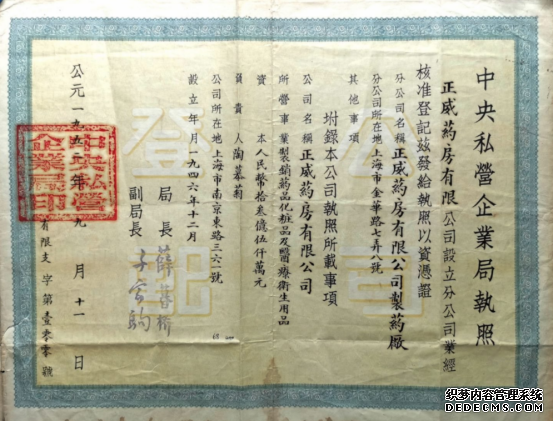 中央私營企業局執照
正威药房有限公司設立分公司業經
核准登記兹發給執照以資憑證
分公司名稱正威药房有限公司製药廠
分公司所在地上海市金華路七弄八號
其他事項
坿錄本公司執照所載事項
公司名稱正威药房有限公司
所營事業製銷药品化粧品及醫療衛生用品
資本人民幣拾叁億伍仟萬元
負責人陶慕菊
公司所在地上海市南京東路三六號
設立年月一九四六年十二月
局長薛暮橋
副局長
公元一九五一年九月十一日
有限支字第壹零零號
中央私營企業局印
公司登記
欧梦内容管理系统
DedeCMS.com